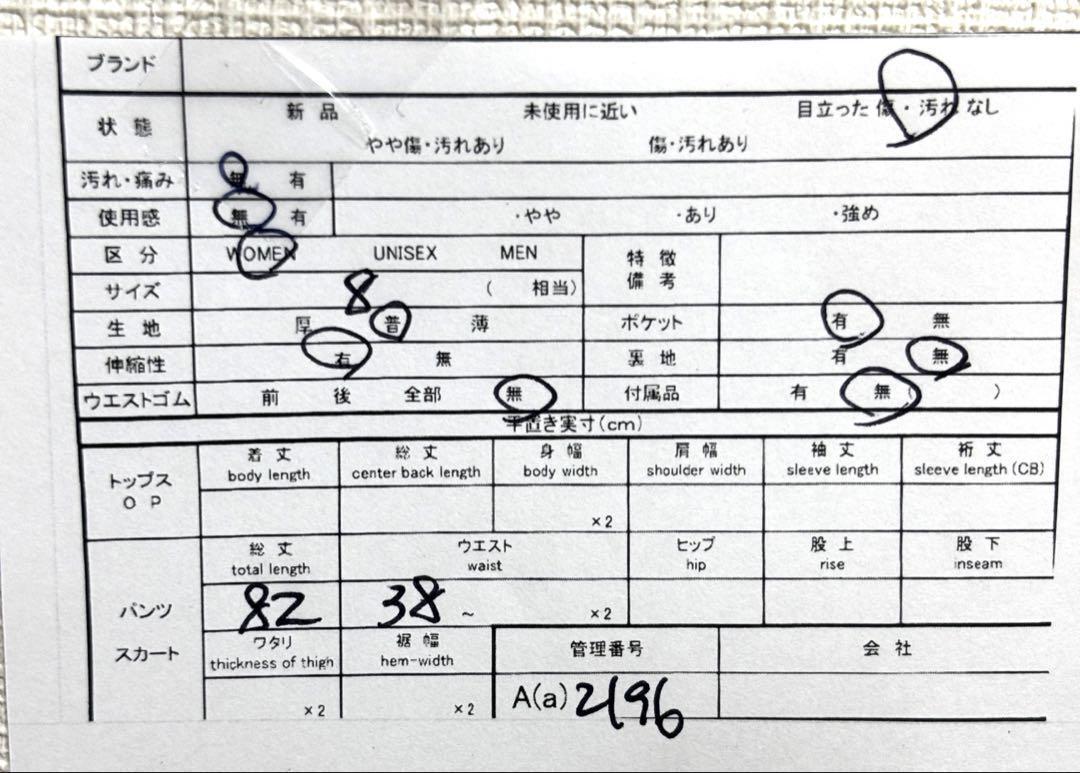 ブランド
状態 新品 未使用に近い 目立った傷・汚れなし
やや傷・汚れあり 傷・汚れあり
汚れ・痛み 無 有
使用感 無 有 ・やや ・あり ・強め
区分 WOMEN UNISEX MEN 特徴備考
サイズ 8 ( 相当)
生地 厚 普 薄 ポケット 有 無
伸縮性 有 無 裏地 有 無
ウエストゴム 前 後 全部 無 付属品 有 無 ( )
平置き実寸(cm)
着丈 総丈 身幅 肩幅 袖丈 裄丈
body length center back length body width shoulder width sleeve length sleeve length (CB)
トップス
OP
×2
総丈 ウエスト ヒップ 股上 股下
total length waist hip rise inseam
パンツ 82 38 ~ ×2
スカート ワタリ 裾幅 管理番号 会社
thickness of thigh hem-width
×2 ×2 A(a) 2196